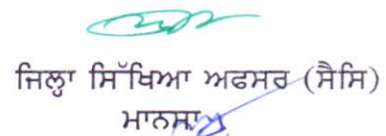 ਜਿਲ੍ਹਾ ਸਿੱਖਿਆ ਅਫਸਰ (ਸੈਸਿ)
ਮਾਨਸਾ